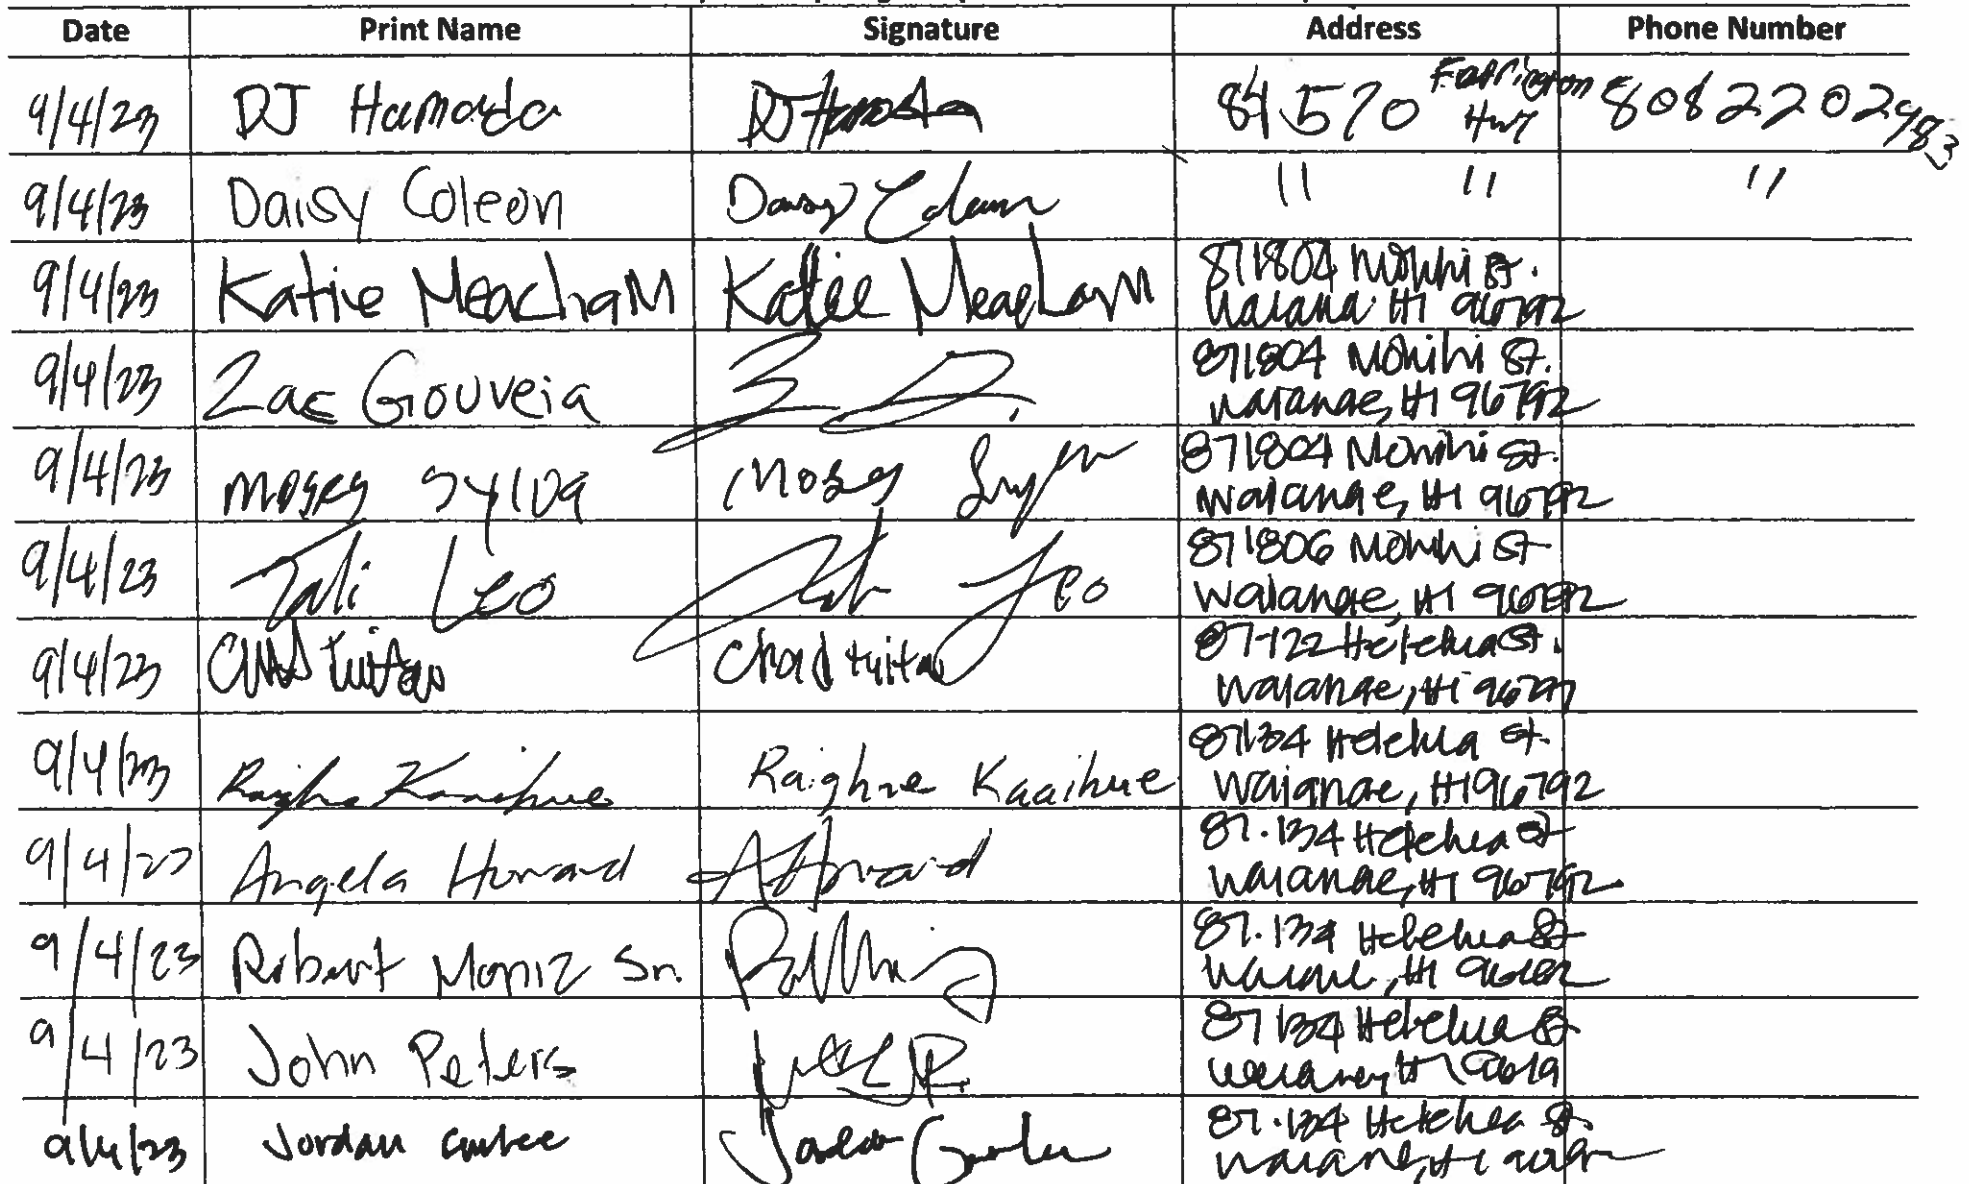 Date Print Name Signature Address Phone Number
9/4/23 DJ Hamada DJ Hamada 84570 Farrington Hwy 8082202983
9/4/23 Daisy Coleon Daisy Coleon " " "
9/4/23 Katie MeachaM Katie MeachaM 871804 Mohihi St.
Waiana HI 96792
9/4/23 Zac Gouveia 871804 Mohihi St.
Waianae, HI 96792
9/4/23 Moses Sylva Moses 871804 Mohihi St.
Waianae, HI 96792
9/4/23 Tali Leo Leo 871806 Mohihi St
Waianae, HI 96792
9/4/23 Chad tuitau 87-122 Helelua St.
Waianae, HI
9/4/23 Kaaihue Raighne Kaaihue 87134 Helelua St.
Waianae, HI 96792
9/4/23 Angela Howard AHoward 87.134 Helelua St
Waianae, HI 96792
9/4/23 Robert Moniz Sr. 87.134 Helelua St
HI
9/4/23 John Peters 87134 Helelua St
HI
9/4/23 Jordan Jordan 87.134 Helelua St.
HI